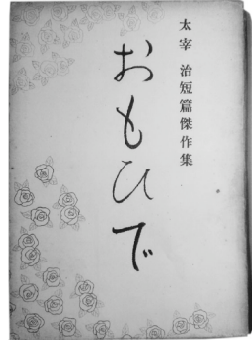 太宰 治短篇傑作集
おもひで